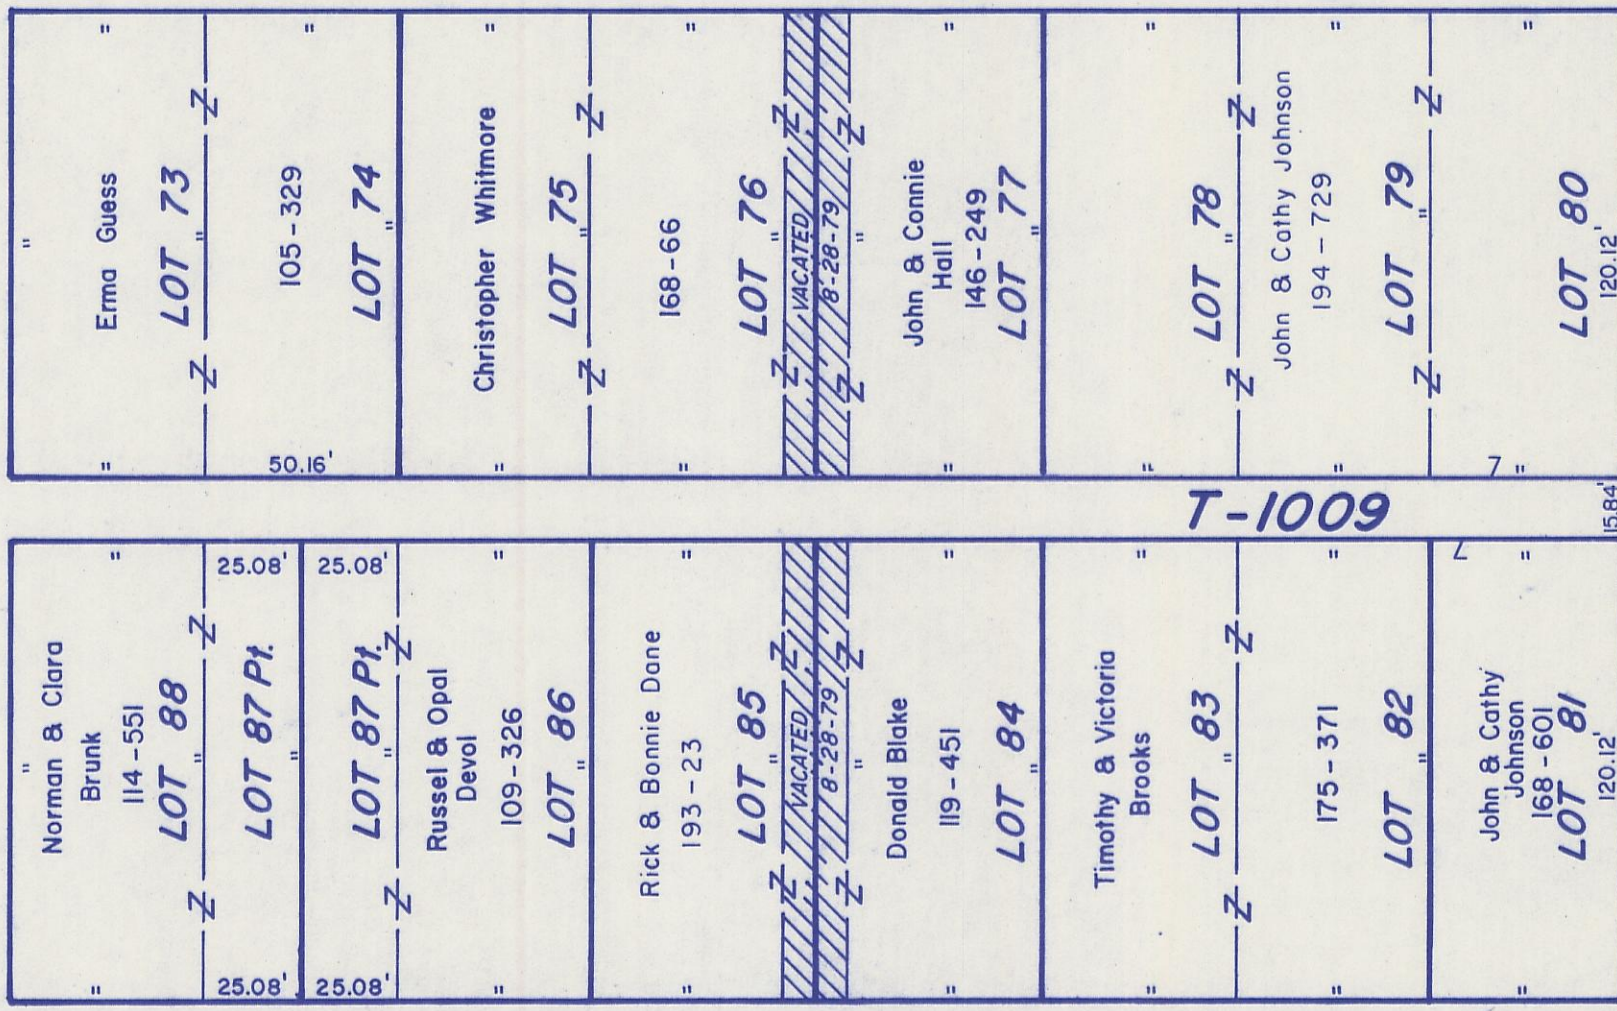 "
"
"
Erma Guess
LOT 73
"
"
"
50.16'
105-329
LOT 74
"
"
"
Christopher Whitmore
LOT 75
"
"
168-66
"
LOT 76
"
VACATED
8-28-79
"
"
John & Connie
Hall
146-249
"
LOT 77
"
"
"
LOT 78
"
John & Cathy Johnson
194-729
"
"
LOT 79
"
"
7 "
LOT 80
120.12'
T-1009
15.84'
"
Norman & Clara
Brunk
114-551
"
"
LOT 88
"
25.08'
25.08'
LOT 87 Pt.
"
25.08'
25.08'
LOT 87 Pt.
"
Russel & Opal
Devol
109-326
"
"
LOT 86
"
Rick & Bonnie Dane
193-23
"
"
LOT 85
"
VACATED
8-28-79
"
Donald Blake
119-451
"
"
LOT 84
"
Timothy & Victoria
Brooks
"
"
LOT 83
"
175-371
"
"
LOT 82
"
7
"
"
John & Cathy
Johnson
168-601
LOT 81
120.12'